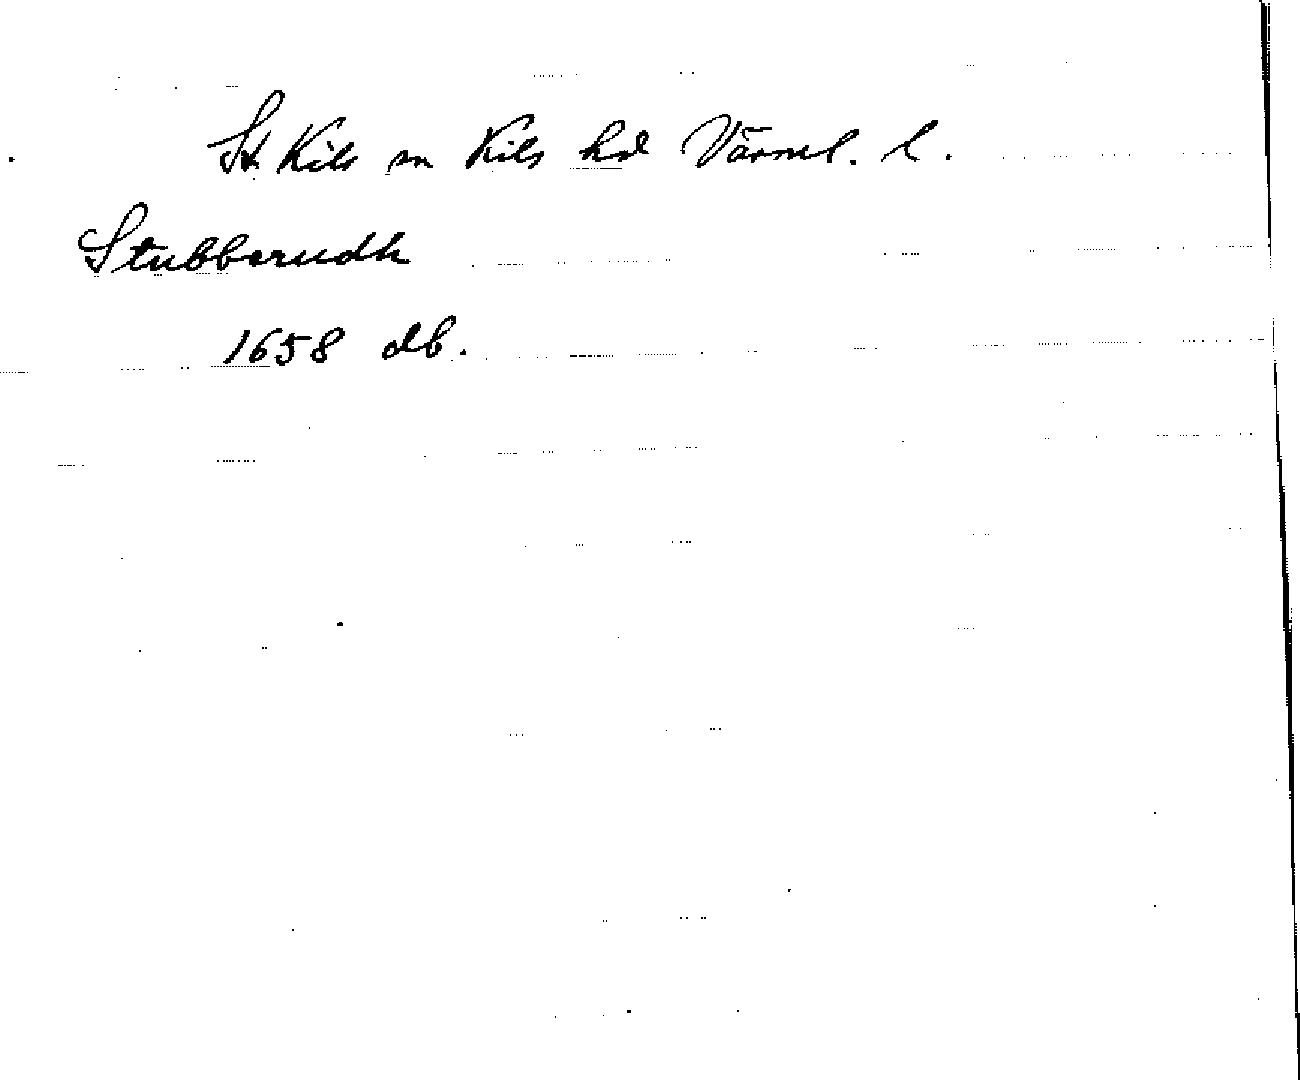 St. Kils sn Kils hd Värml. l.
Stubberudh
1658 db.